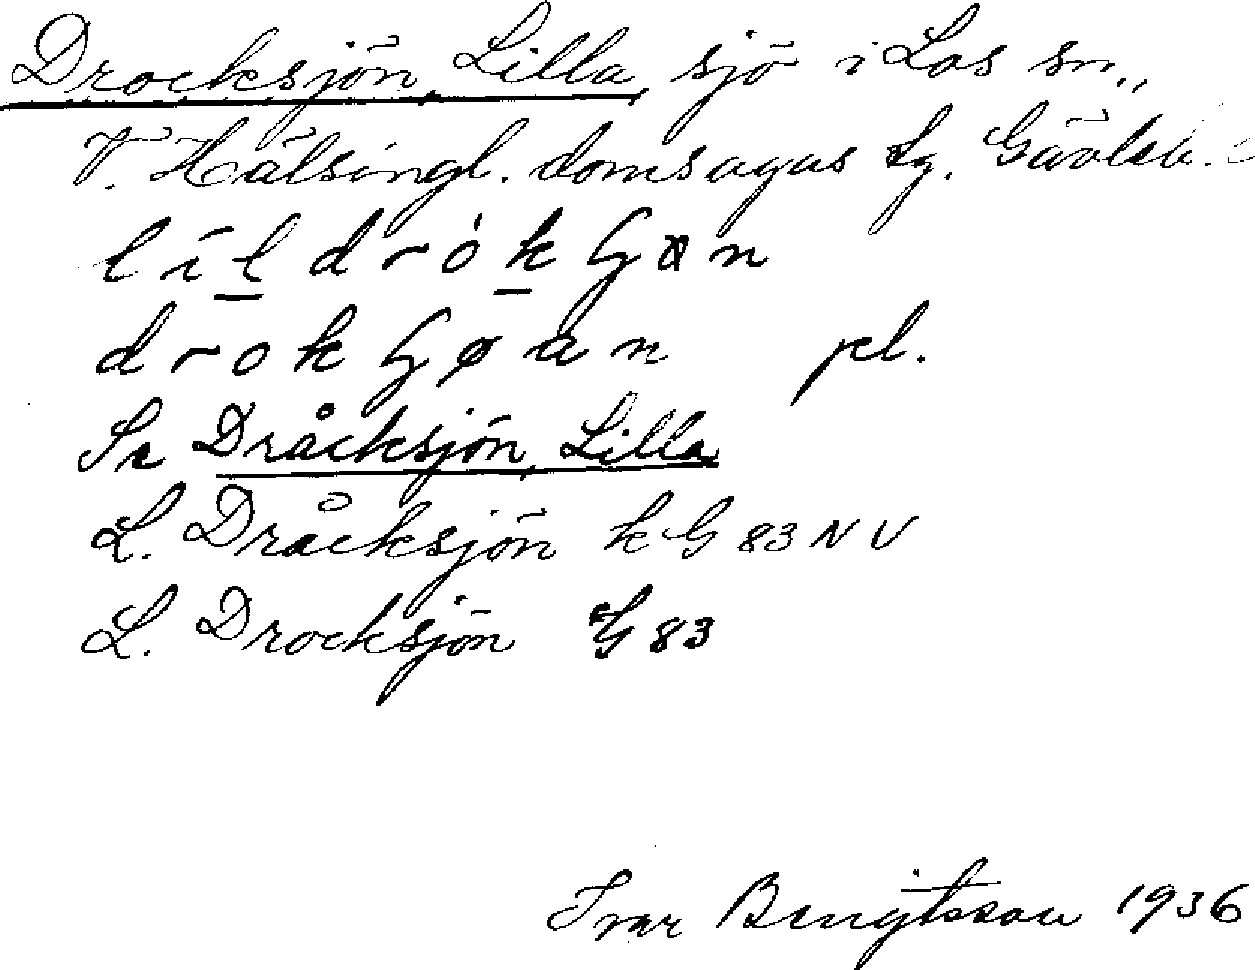 Drocksjön, Lilla, sjö i Los sn.,
V. Hälsingl. domsagas tg. Gävleb.
l í l d r ó k ʃ ø n
d r o k ʃ ø a n pl.
Se Dråcksjön, Lilla
L. Dråcksjön k G 83 NV
L. Drocksjön G 83
Ivar Bengtsson 1936